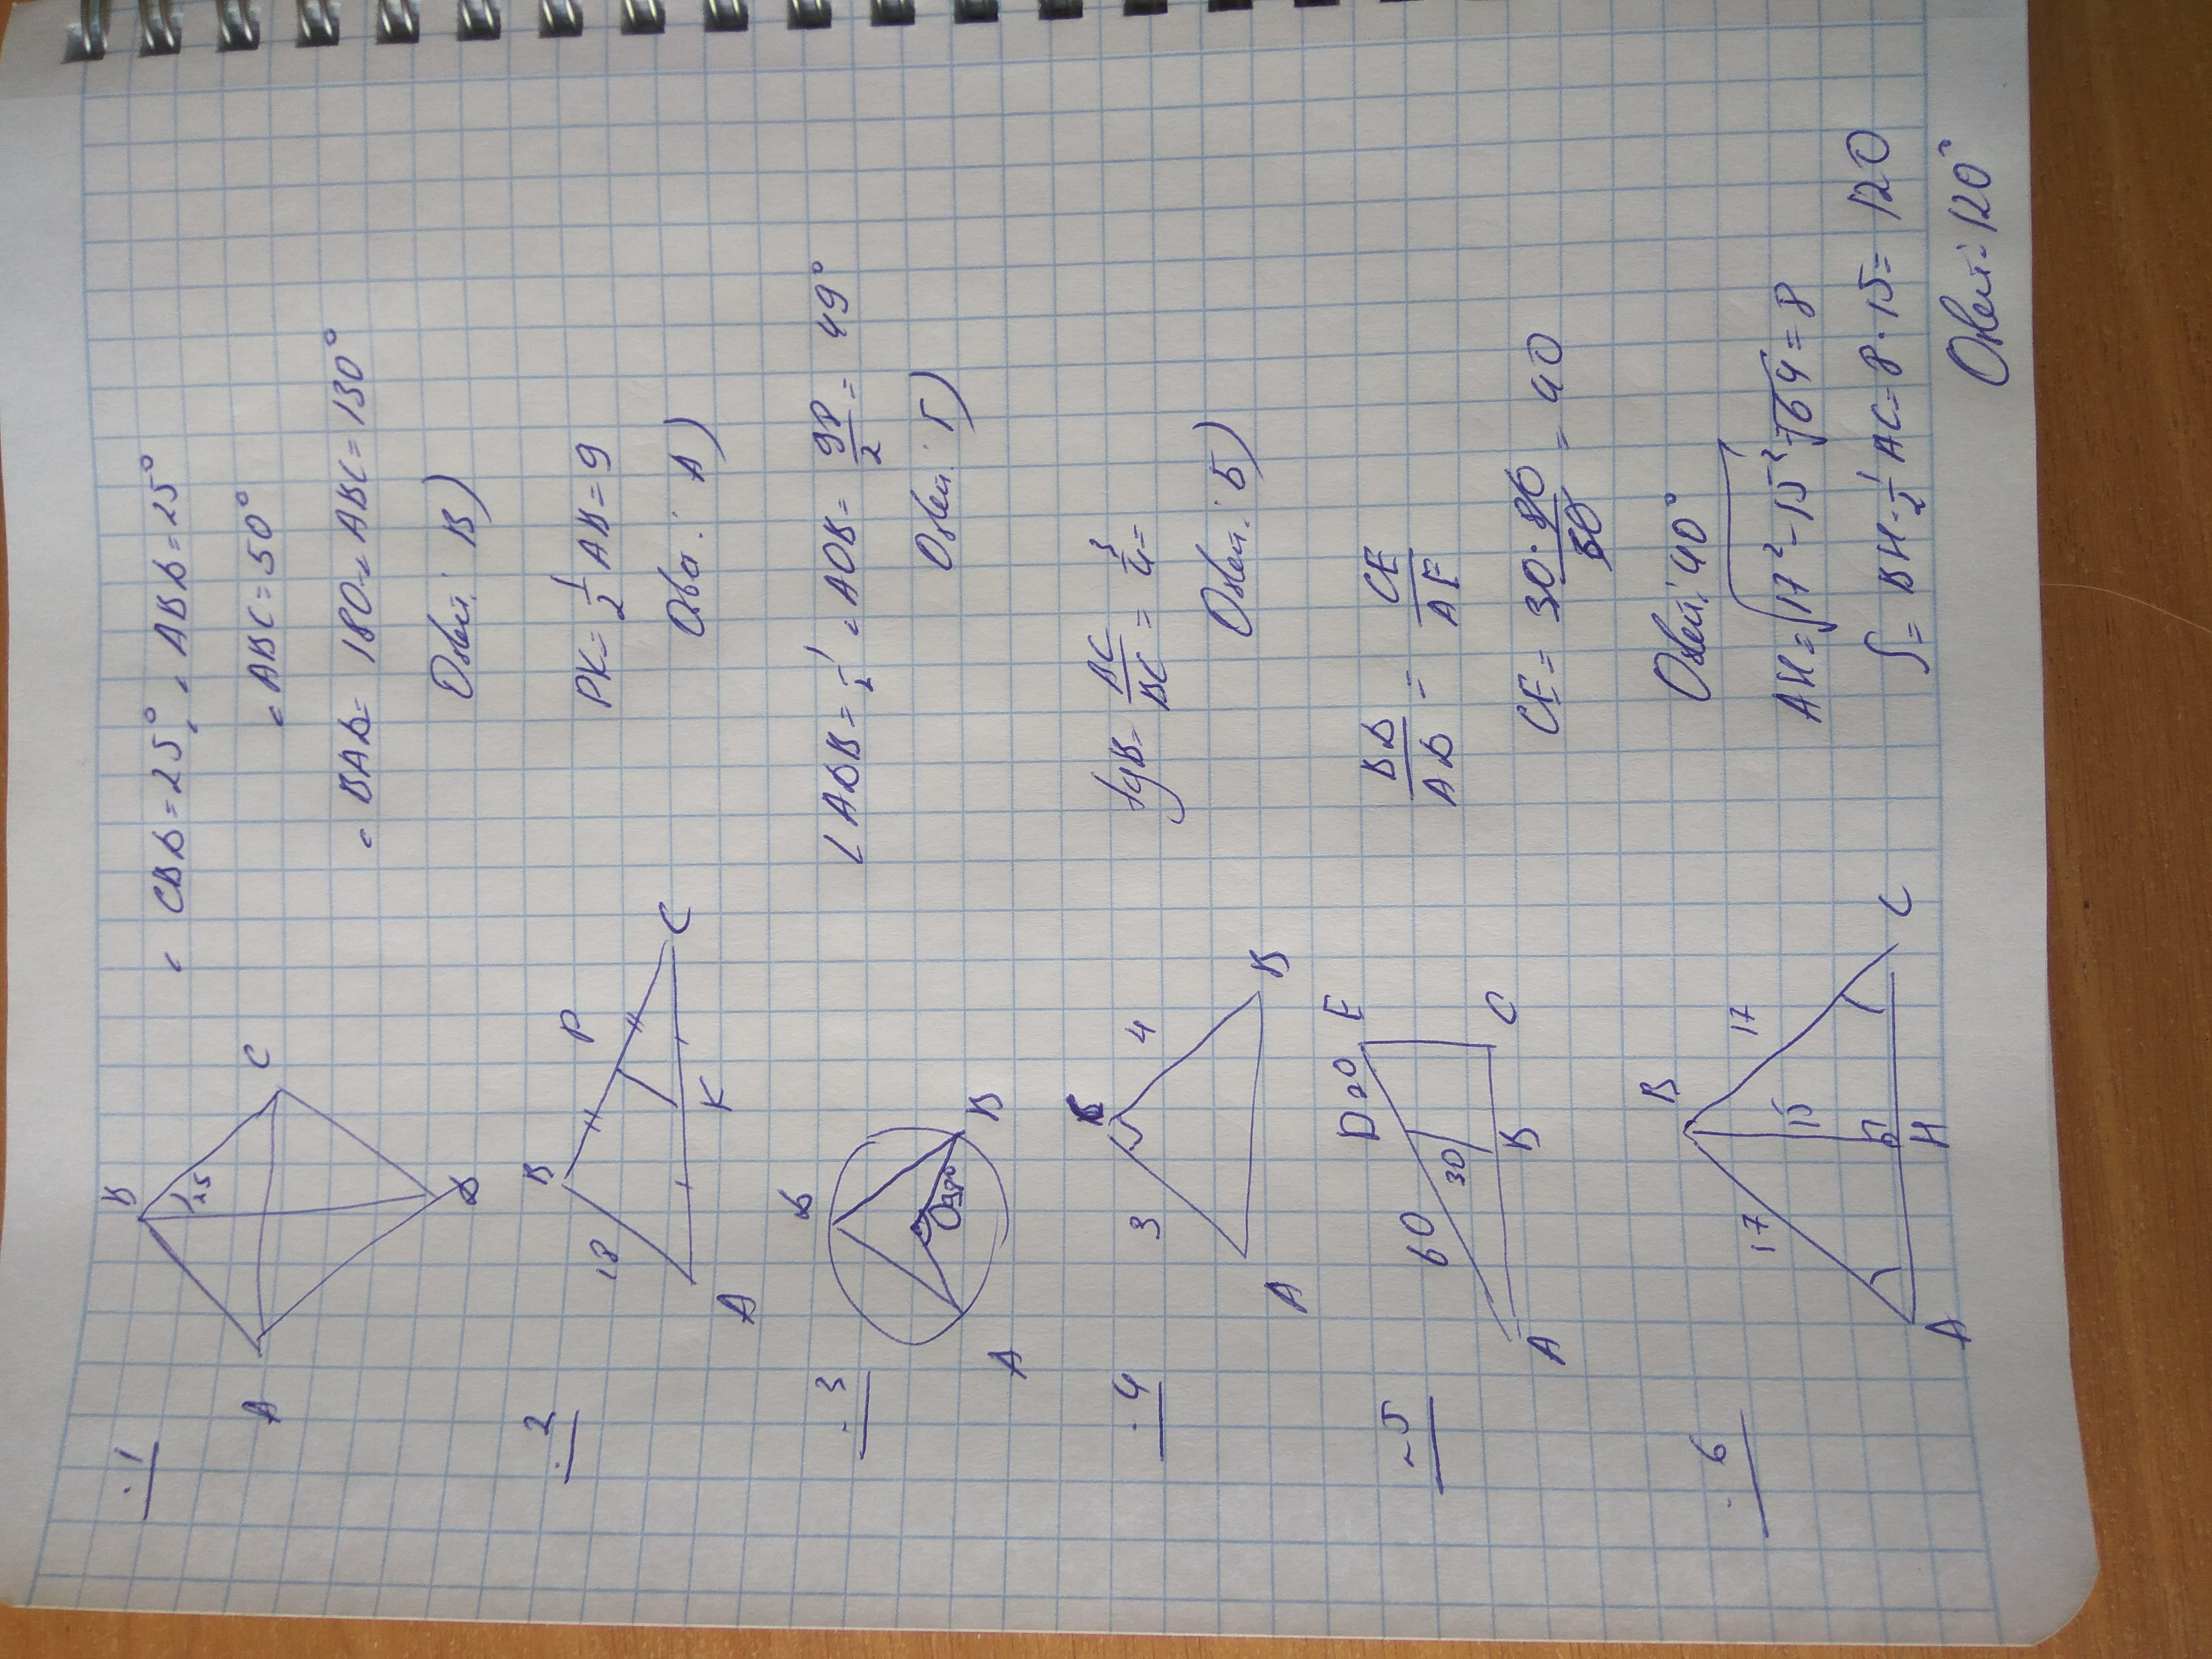 . 1
B
25
A
C
D
∠ CBD = 25°, ∠ ABD = 25°
∠ ABC = 50°
∠ BAD = 180 - ∠ ABC = 130°
Ответ: В)
. 2
B
P
18
A
K
C
PK = 1/2 AB = 9
Ответ: А)
. 3
D
O 98°
A
B
∠ ADB = 1/2 ∠ AOB = 98/2 = 49°
Ответ: Г)
. 4
C
3
4
A
B
tgB = AC/BC = 3/4 =
Ответ: Б)
~ 5
60
D 20
E
30
A
B
C
BD/AD = CE/AE
CE = 30 · 80/60 = 40
Ответ: 40°
. 6
B
17
17
15
A
H
C
AH = √17² - 15² = √64 = 8
S = BH · 1/2 AC = 8 · 15 = 120
Ответ: 120°